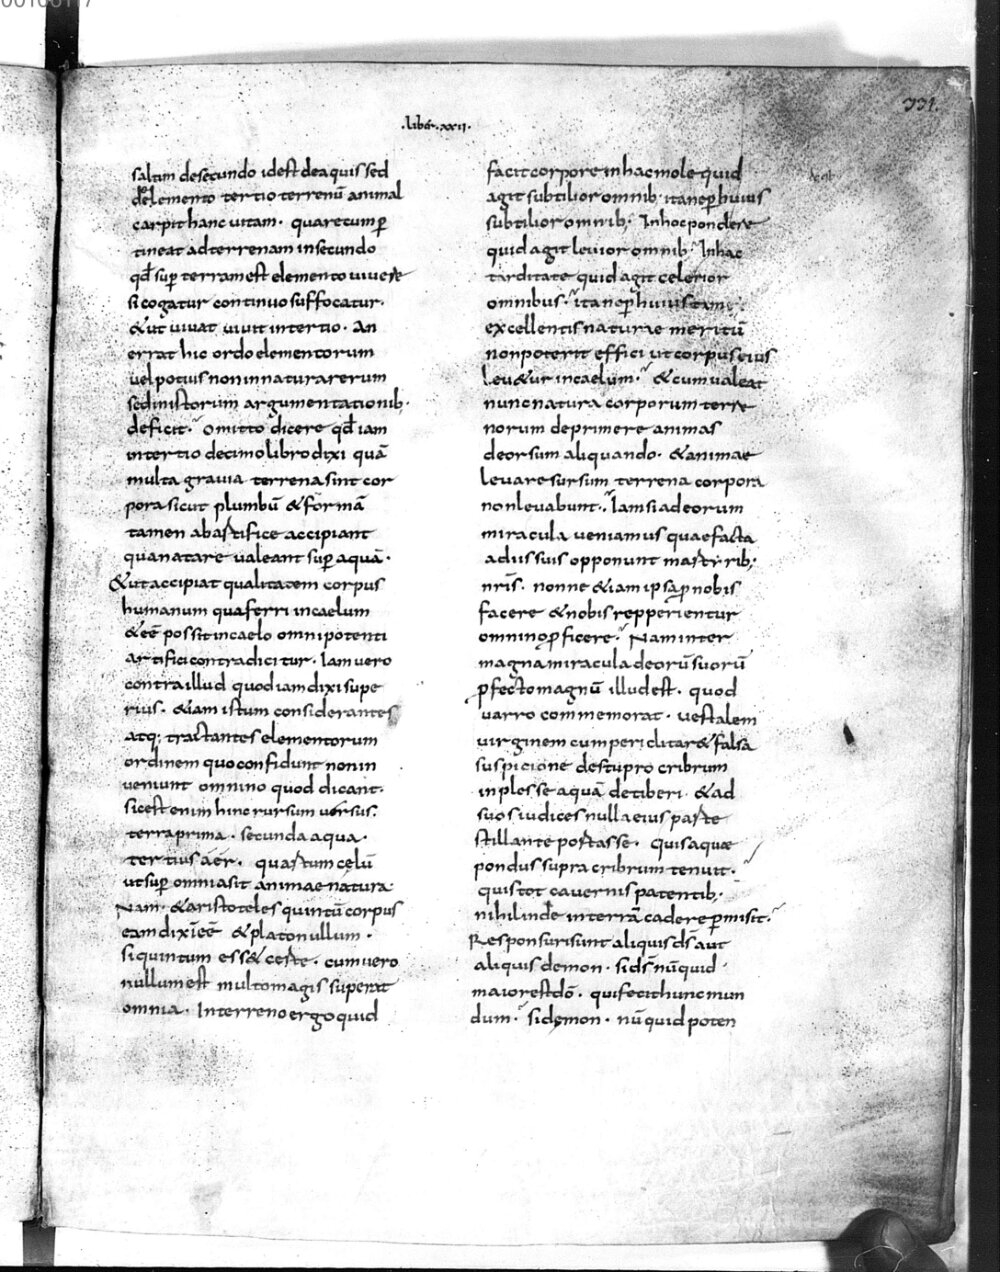 331.
.liber.xxii.
saltim desecundo idest deaquis sed
deelemento tertio terrenū animal
carpit hanc uitam. quare cum p̄
tineat adterrenam insecundo
qđ sup terram est elemento uiuere
si cogatur continuo suffocatur.
&ut uiuat uiuit intertio. An
errat hic ordo elementorum
uel potius non innatura rerum
sed inistorum argumentationib.
deficit. omitto dicere qđ iam
intertio decimo libro dixi quā
multa grauia terrena sint cor
pora sicut plumbū & formā
tamen abartifice accipiant
qua natare ualeant sup aquā.
&ut accipiat qualitatem corpus
humanum qua ferri incaelum
&eē possit incaelo omnipotenti
artifici contradicitur. Iam uero
contra illud quod iam dixi supe
rius. &iam istum considerantes
atq; tractantes elementorum
ordinem quo confidunt non in
ueniunt omnino quod dicant.
sic est enim hinc rursum uersus.
terra prima. secunda aqua.
tertius aer. quartum celū
ut sup omnia sit animae natura
Nam. &aristoteles quintū corpus
eam dixit eē &plato nullum.
si quintum ess& certe. cum uero
nullum est multo magis superat
omnia. Interreno ergo quid
facit corpore inhac mole quid
agit subtilior omnib; itane p huius
subtilior omnib; Inhoc pondere
quid agit leuior omnib; Inhac
tarditate quid agit celerior
omnibus. itane p huius tam
excellentis naturae meritū
non poterit effici ut corpus eius
leu&ur incaelum. &cum ualeat
nunc natura corporum terre
norum deprimere animas
deorsum aliquando. &animae
leuare sursum terrena corpora
non leuabunt. Iam si adeorum
miracula ueniamus quae facta
adiis suis opponunt martyrib;
nr̄is. nonne &iam ipsa p nobis
facere & nobis repperientur
omnino p ficere. Nam inter
magna miracula deorū suorū
p fecto magnū illud est. quod
uarro commemorat. uestalem
uirginem cum periclitar& falsa
suspicione destupro cribrum
inplesse aquā detiberi. &ad
suos iudices nulla eius parte
stillante portasse. quis aquae
pondus supra cribrum tenuit.
quis tot cauernis patentib;
nihil inde interrā cadere pmisit.
Responsuri sunt aliquis dš aut
aliquis demon. si dš nūquid
maior est dō. qui fecit hunc mun
dum. si demon. nūquid poten